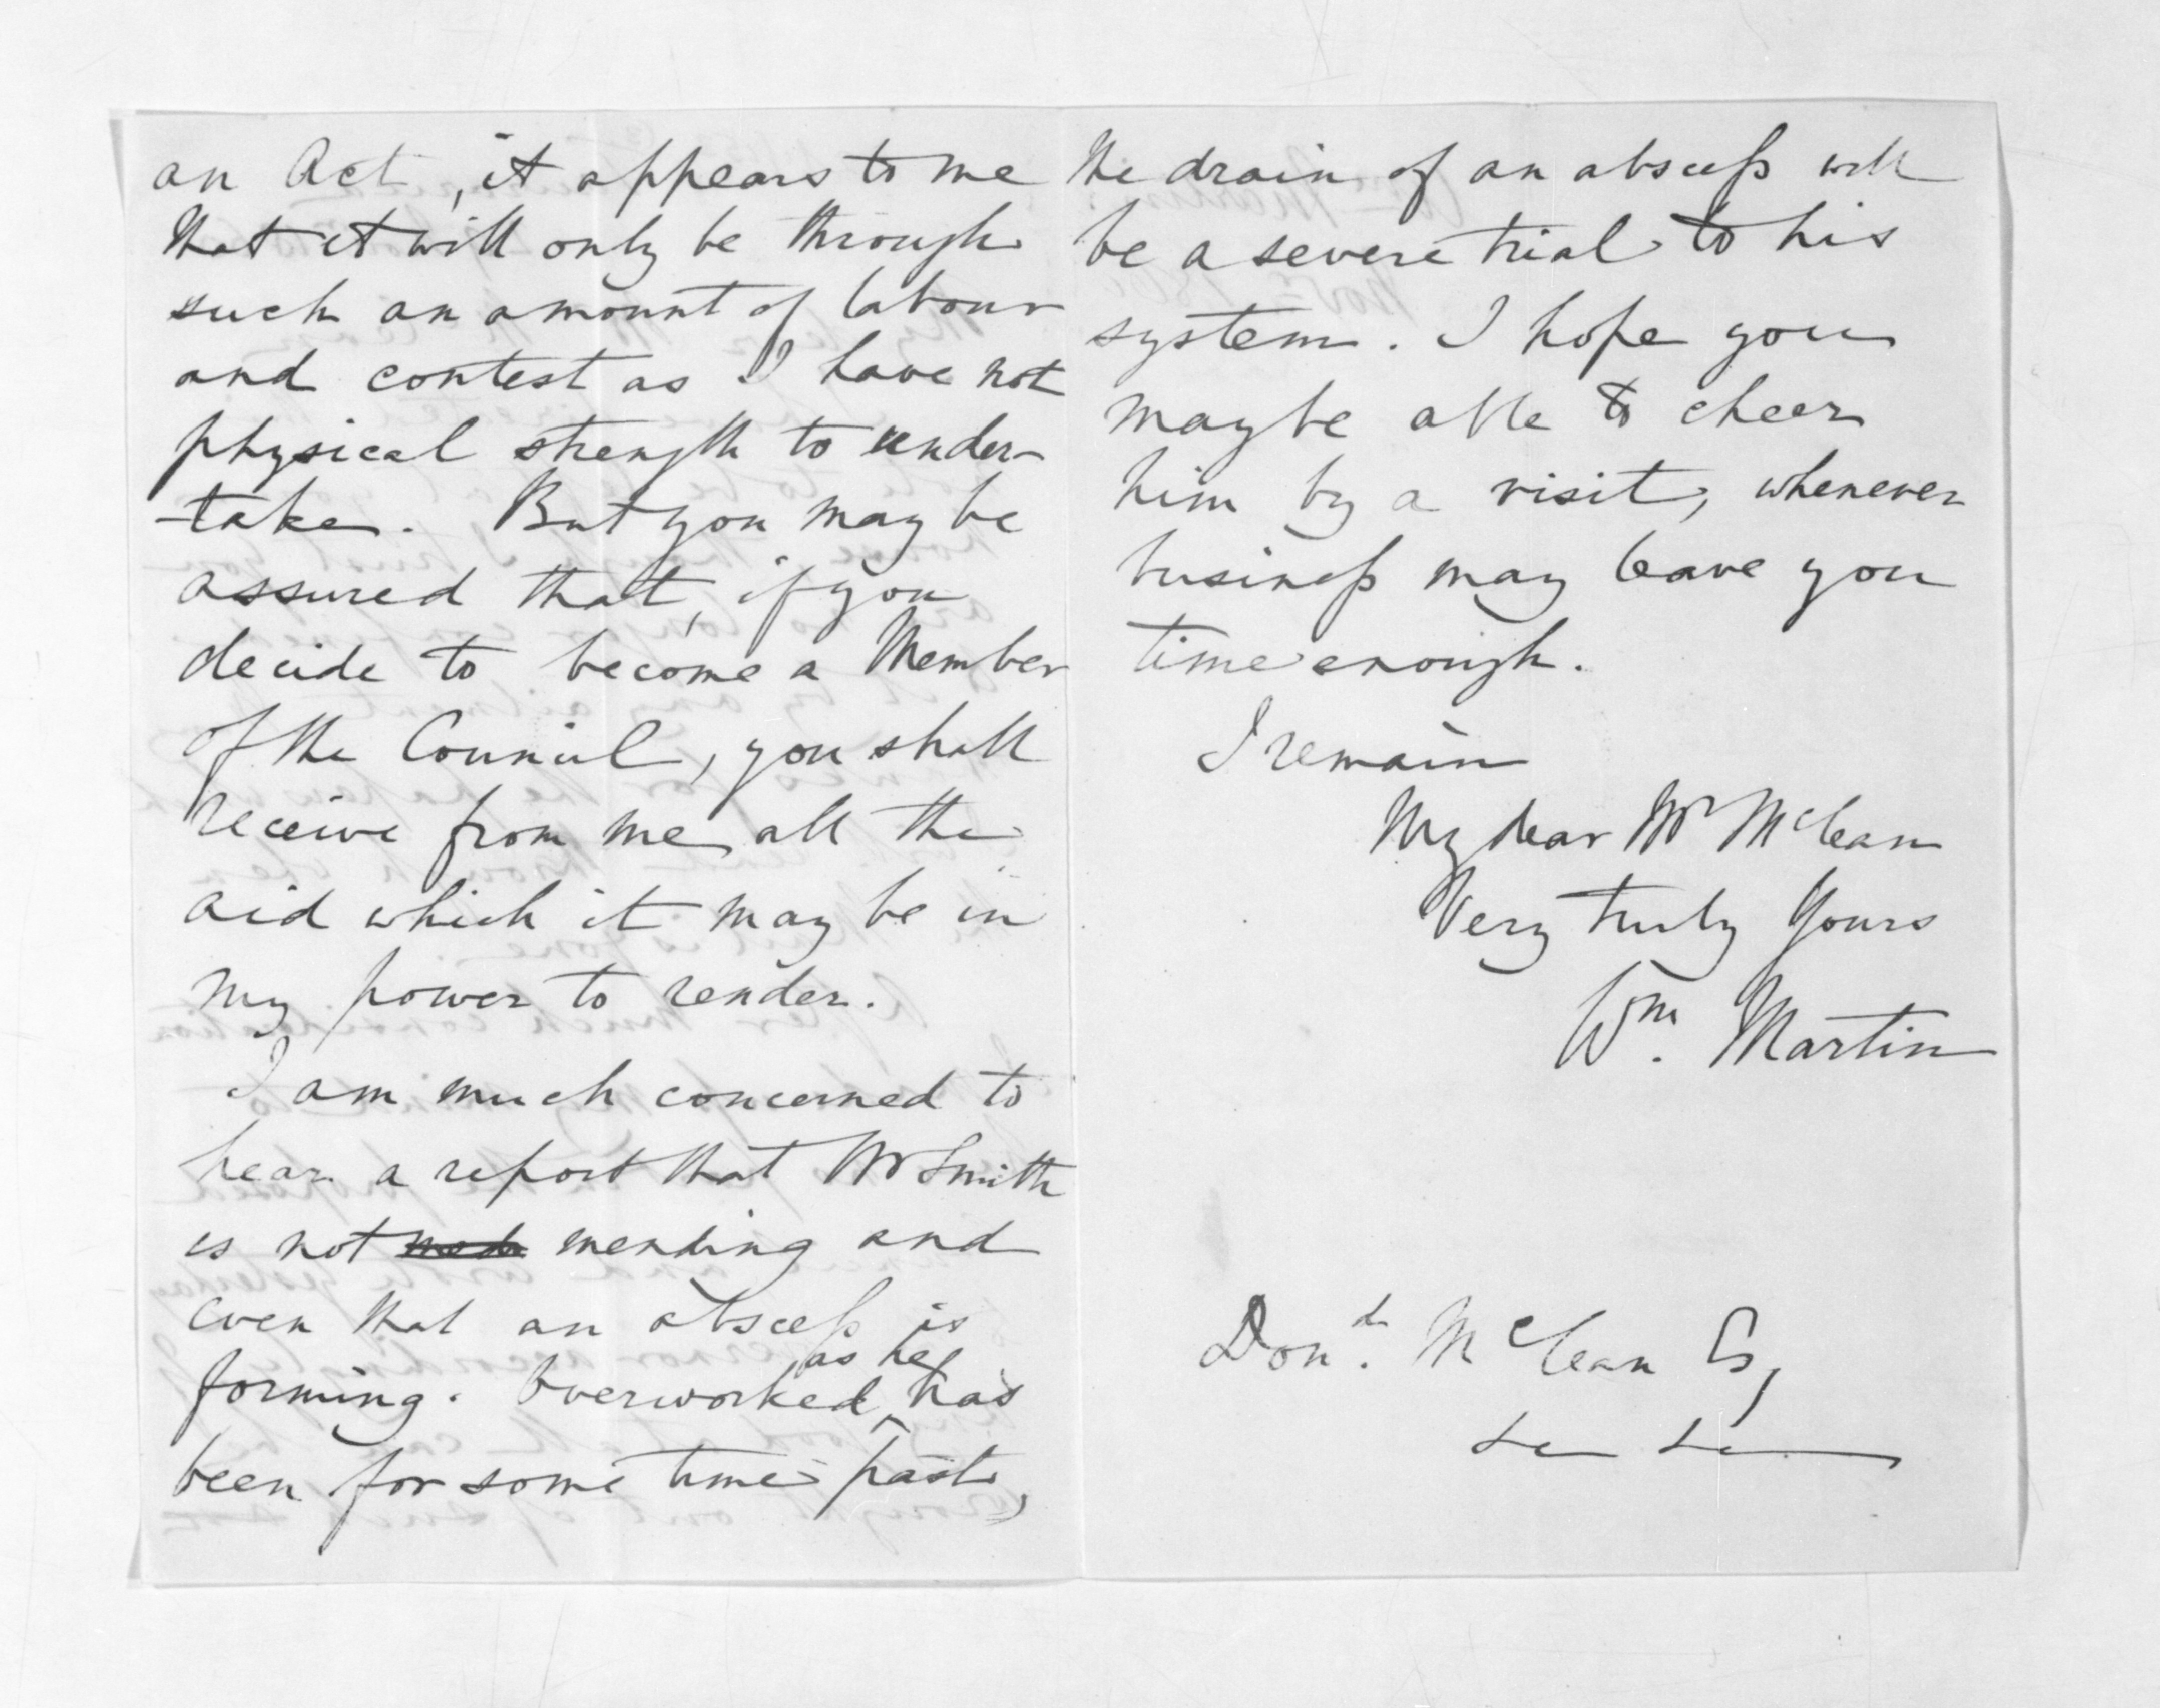 an Act, it appears to me
that it will only be through
such an amount of labour
and contest as I have not
physical strength to under-
-take. But you may be
assured that, if you
decide to become a Member
of the Council, you shall
receive from me all the
aid which it may be in
my power to render.
I am much concerned to
hear a report that Mr Smith
is not mending and
even that an abscess is
forming. Overworked as he has
been for some time past,
the drain of an abscess will
be a severe trial to his
system. I hope you
may be able to cheer
him by a visit, whenever
business may leave you
time enough.
I remain
My dear Mr McLean
Very truly Yours
Wm. Martin
Dond. McLean Esq
&c &c